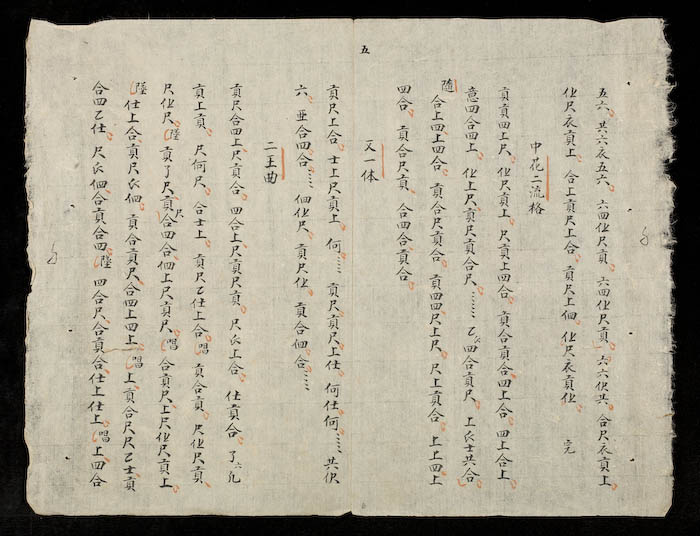 五
五六。共六衣五六。六四化尺貢。六四化尺貢。六六伬共。合尺衣貢上
化尺衣貢上。合上貢尺上合。貢尺上佃。化尺衣貢化。 完
中花二流格
貢貢四上尺。化尺貢上。尺貢上四合。貢合貢合四上合。四上合上
意四合四上。化上尺貢尺貢合尺……乙四合貢尺。上氏士共合
隨 合上四上四合。貢合尺貢合。貢四四尺上尺。尺上貢合。上上四上
四合。貢合尺貢。合四合尺貢合。
又一体
貢尺上合。士上尺貢上。何……貢尺貢尺上仕。何仕何……共伬
六。亜合四合……佃化尺。貢尺化。貢合佃合……
二王曲
貢尺合四上尺貢合。四合上尺貢尺貢。尺氏上合。仕貢合。了六凡
貢上貢。尺何尺。合士上。貢尺乙仕上合。唱 貢合貢。尺化尺貢
尺化尺。陸 貢了尺貢尺合四合佃上尺貢尺。唱 合貢尺上尺化尺貢上
陸 仕上合貢尺氏佃。貢合貢尺合四上四上。唱 上貢合尺尺乙士貢
合四乙仕。尺氏佃合貢合四。陸 四合尺合貢合仕上仕上。唱 上四合